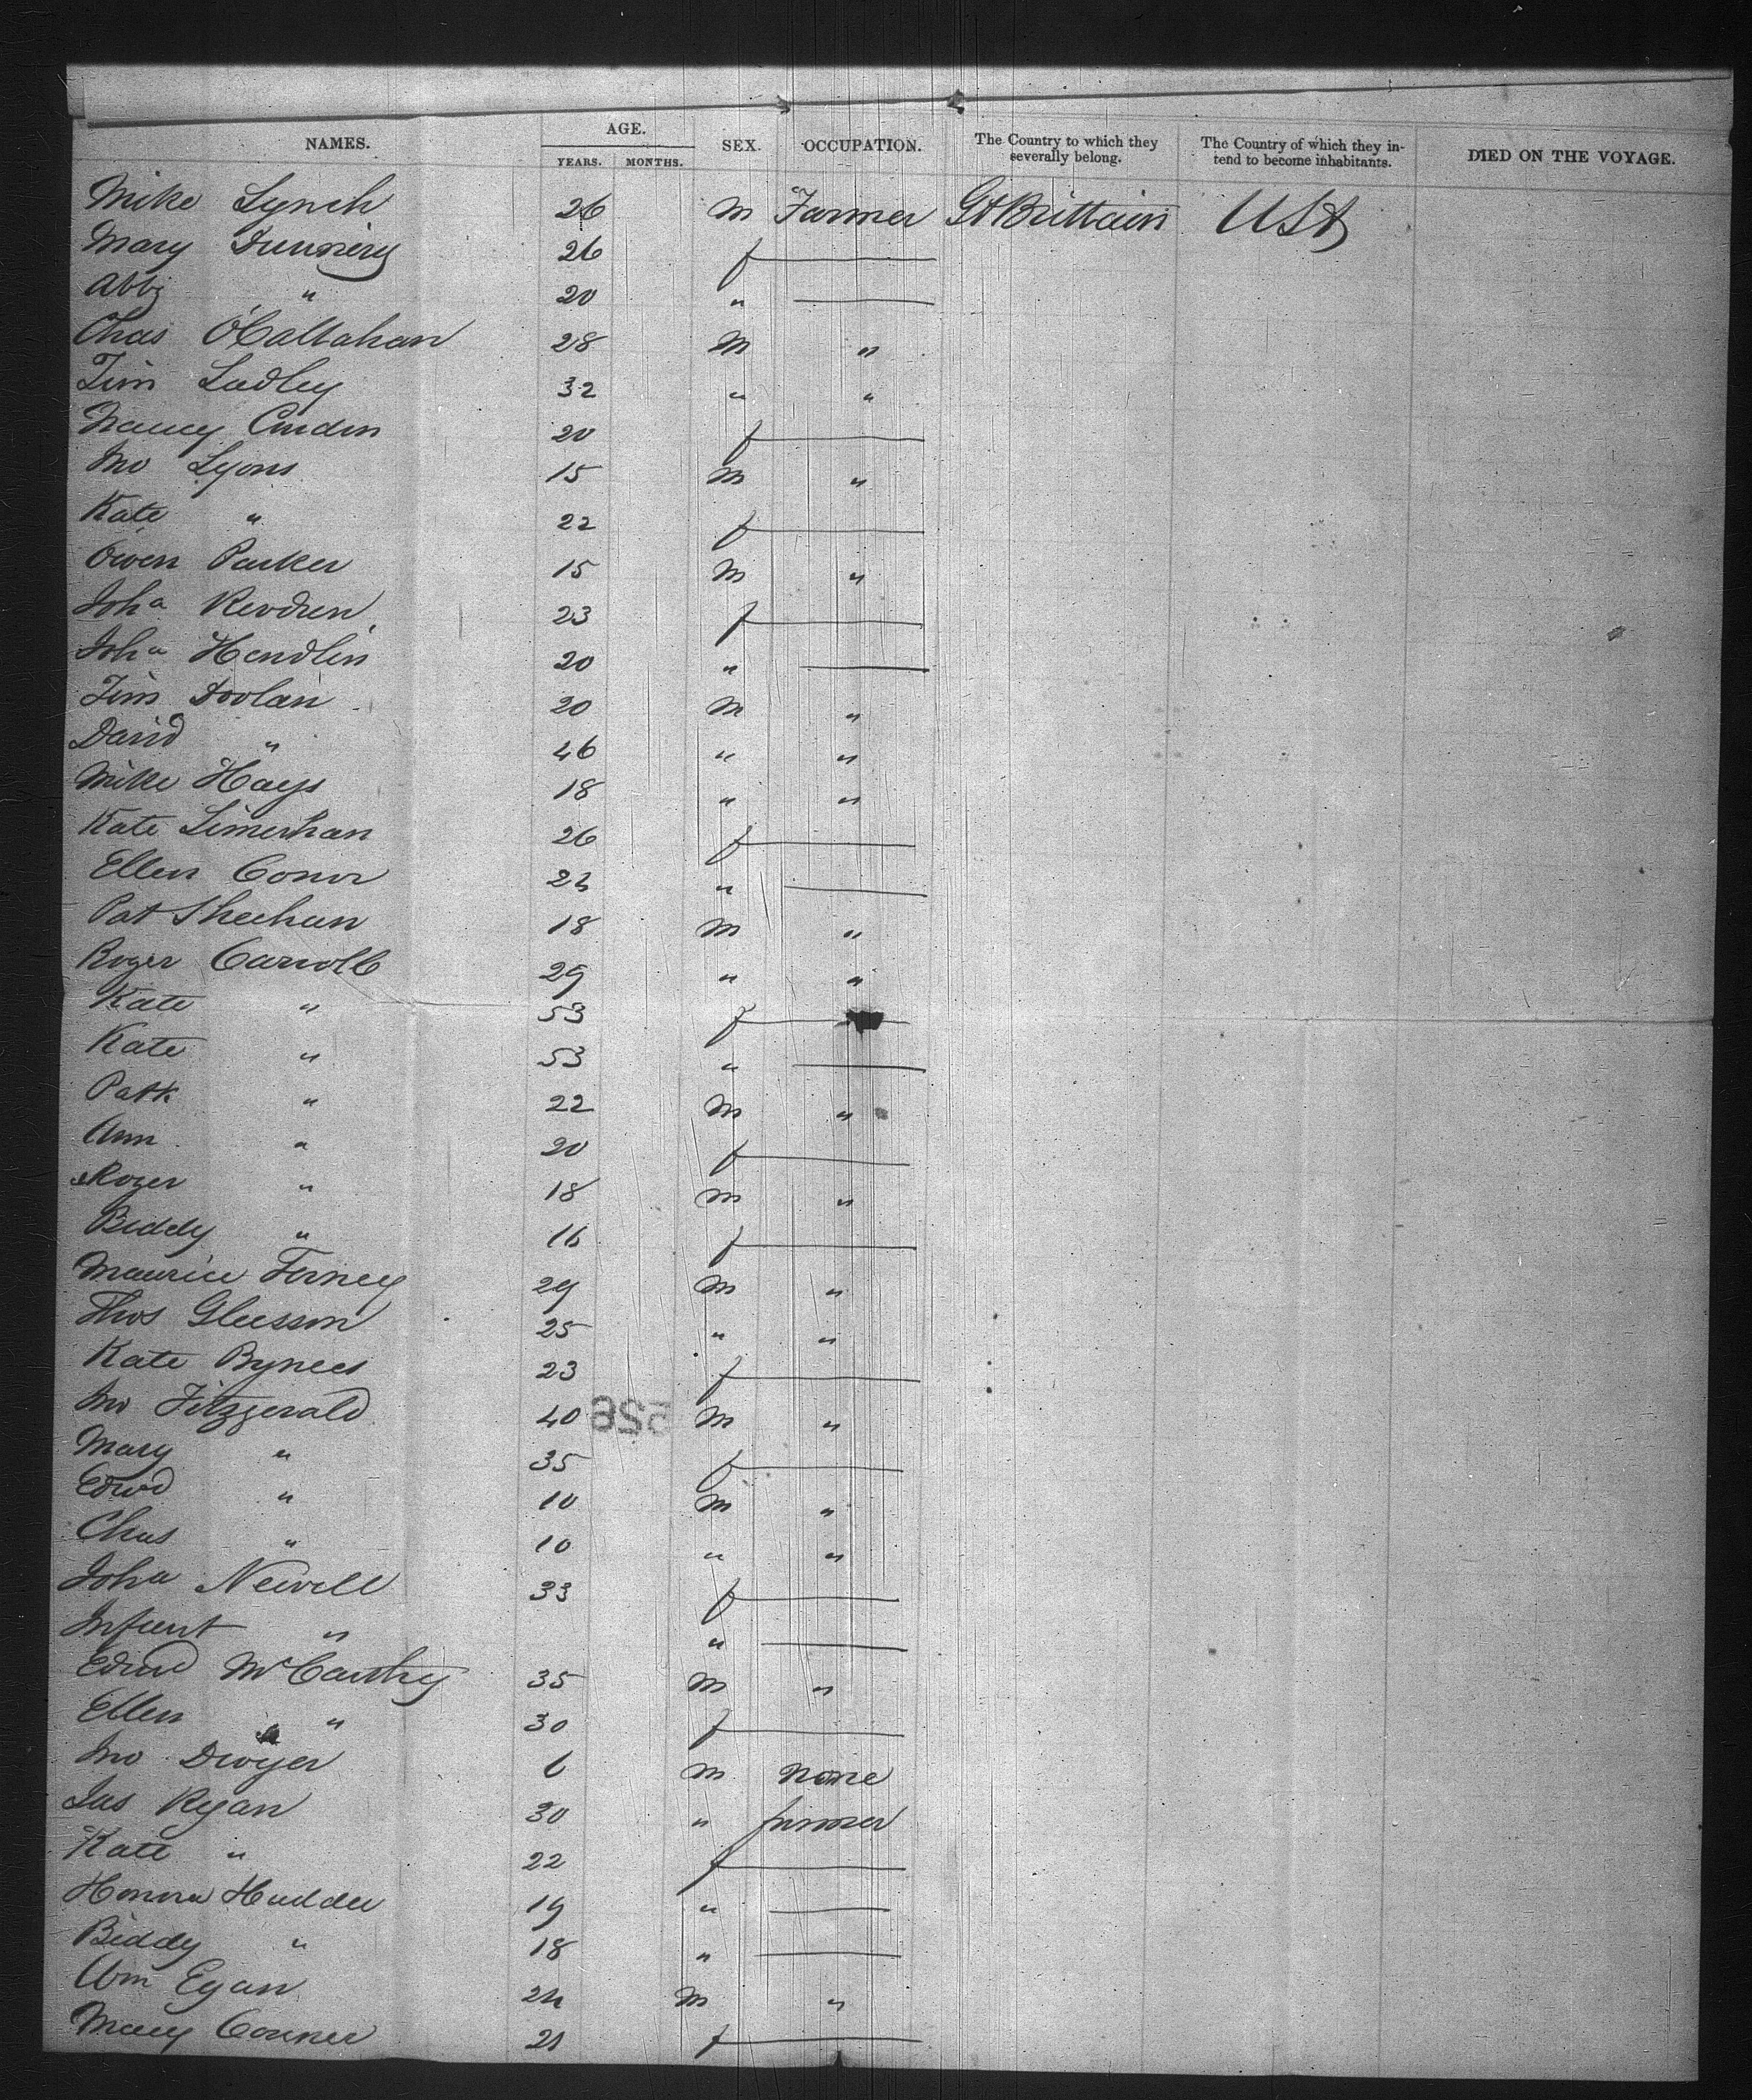 NAMES. AGE. SEX. OCCUPATION. The Country to which they severally belong. The Country of which they intend to become inhabitants. DIED ON THE VOYAGE.
YEARS. MONTHS.
Mike Lynch 26 m Farmer Gt Brittain USA
Mary 26 f
Abby " 20 "
Chas O'Callahan 28 M "
Tim Ladley 32 " "
Nancy 20 f
Jno Lyons 15 M "
Kate " 22 f
Owen Parker 15 M "
Joha 23 f
Joha Hendlin 20 "
Tim Doolan 20 M "
David " 46 " "
Mike Hays 18 " "
Kate 26 f
Ellen Conor 23 "
Pat Sheehan 18 M "
Roger Carroll 29 " "
Kate " 53 f
Kate " 53 "
Patk " 22 M "
Ann " 20 f
Roger " 18 m "
Biddy " 16 f
Maurice Ferney 29 M "
Thos Gleeson 25 " "
Kate 23 f
Jno Fitzgerald 40 M "
Mary " 35 f
Edwd " 10 M "
Chas " 10 " "
Joha Newell 33 f
Infant " "
Edwd McCarthy 35 M "
Ellen " 30 f
Jno Dwyer 6 m none
Jas Ryan 30 " farmer
Kate " 22 f
Honora 19 "
Biddy " 18 "
Wm Egan 24 M "
Mary Conner 21 f